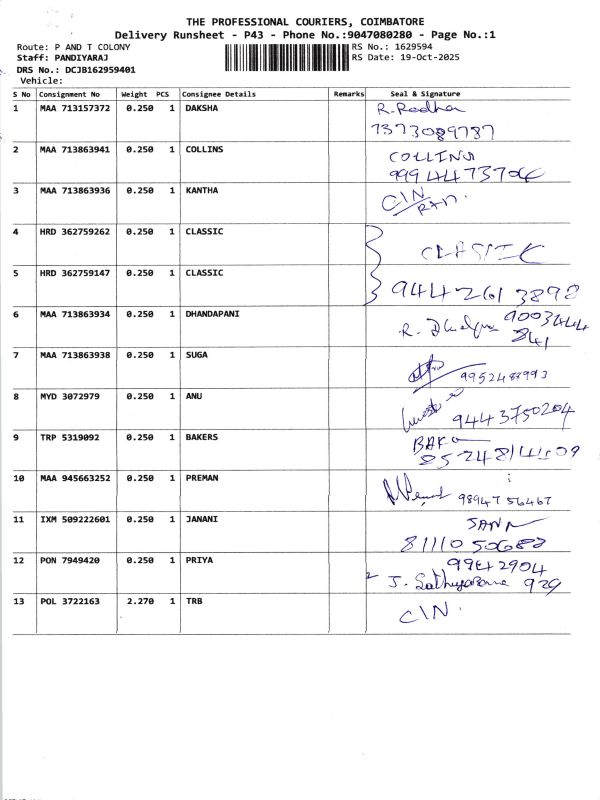 THE PROFESSIONAL COURIERS, COIMBATORE
Delivery Runsheet - P43 - Phone No.:9047080280 - Page No.:1
Route: P AND T COLONY RS No.: 1629594
Staff: PANDIYARAJ RS Date: 19-Oct-2025
DRS No.: DCJB162959401
Vehicle:
S No Consignment No Weight PCS Consignee Details Remarks Seal & Signature
1 MAA 713157372 0.250 1 DAKSHA R. Radha
7373089787
2 MAA 713863941 0.250 1 COLLINS COLLINS
9994473704
3 MAA 713863936 0.250 1 KANTHA CIN
4 HRD 362759262 0.250 1 CLASSIC CLASSIC
5 HRD 362759147 0.250 1 CLASSIC 9442613898
6 MAA 713863934 0.250 1 DHANDAPANI R. 9003444
841
7 MAA 713863938 0.250 1 SUGA 9952487993
8 MYD 3072979 0.250 1 ANU 9443750204
9 TRP 5319092 0.250 1 BAKERS
10 MAA 945663252 0.250 1 PREMAN 98947 56467
11 IXM 509222601 0.250 1 JANANI
81110 50688
12 PON 7949420 0.250 1 PRIYA 9942904
J. 929
13 POL 3722163 2.270 1 TRB CIN.